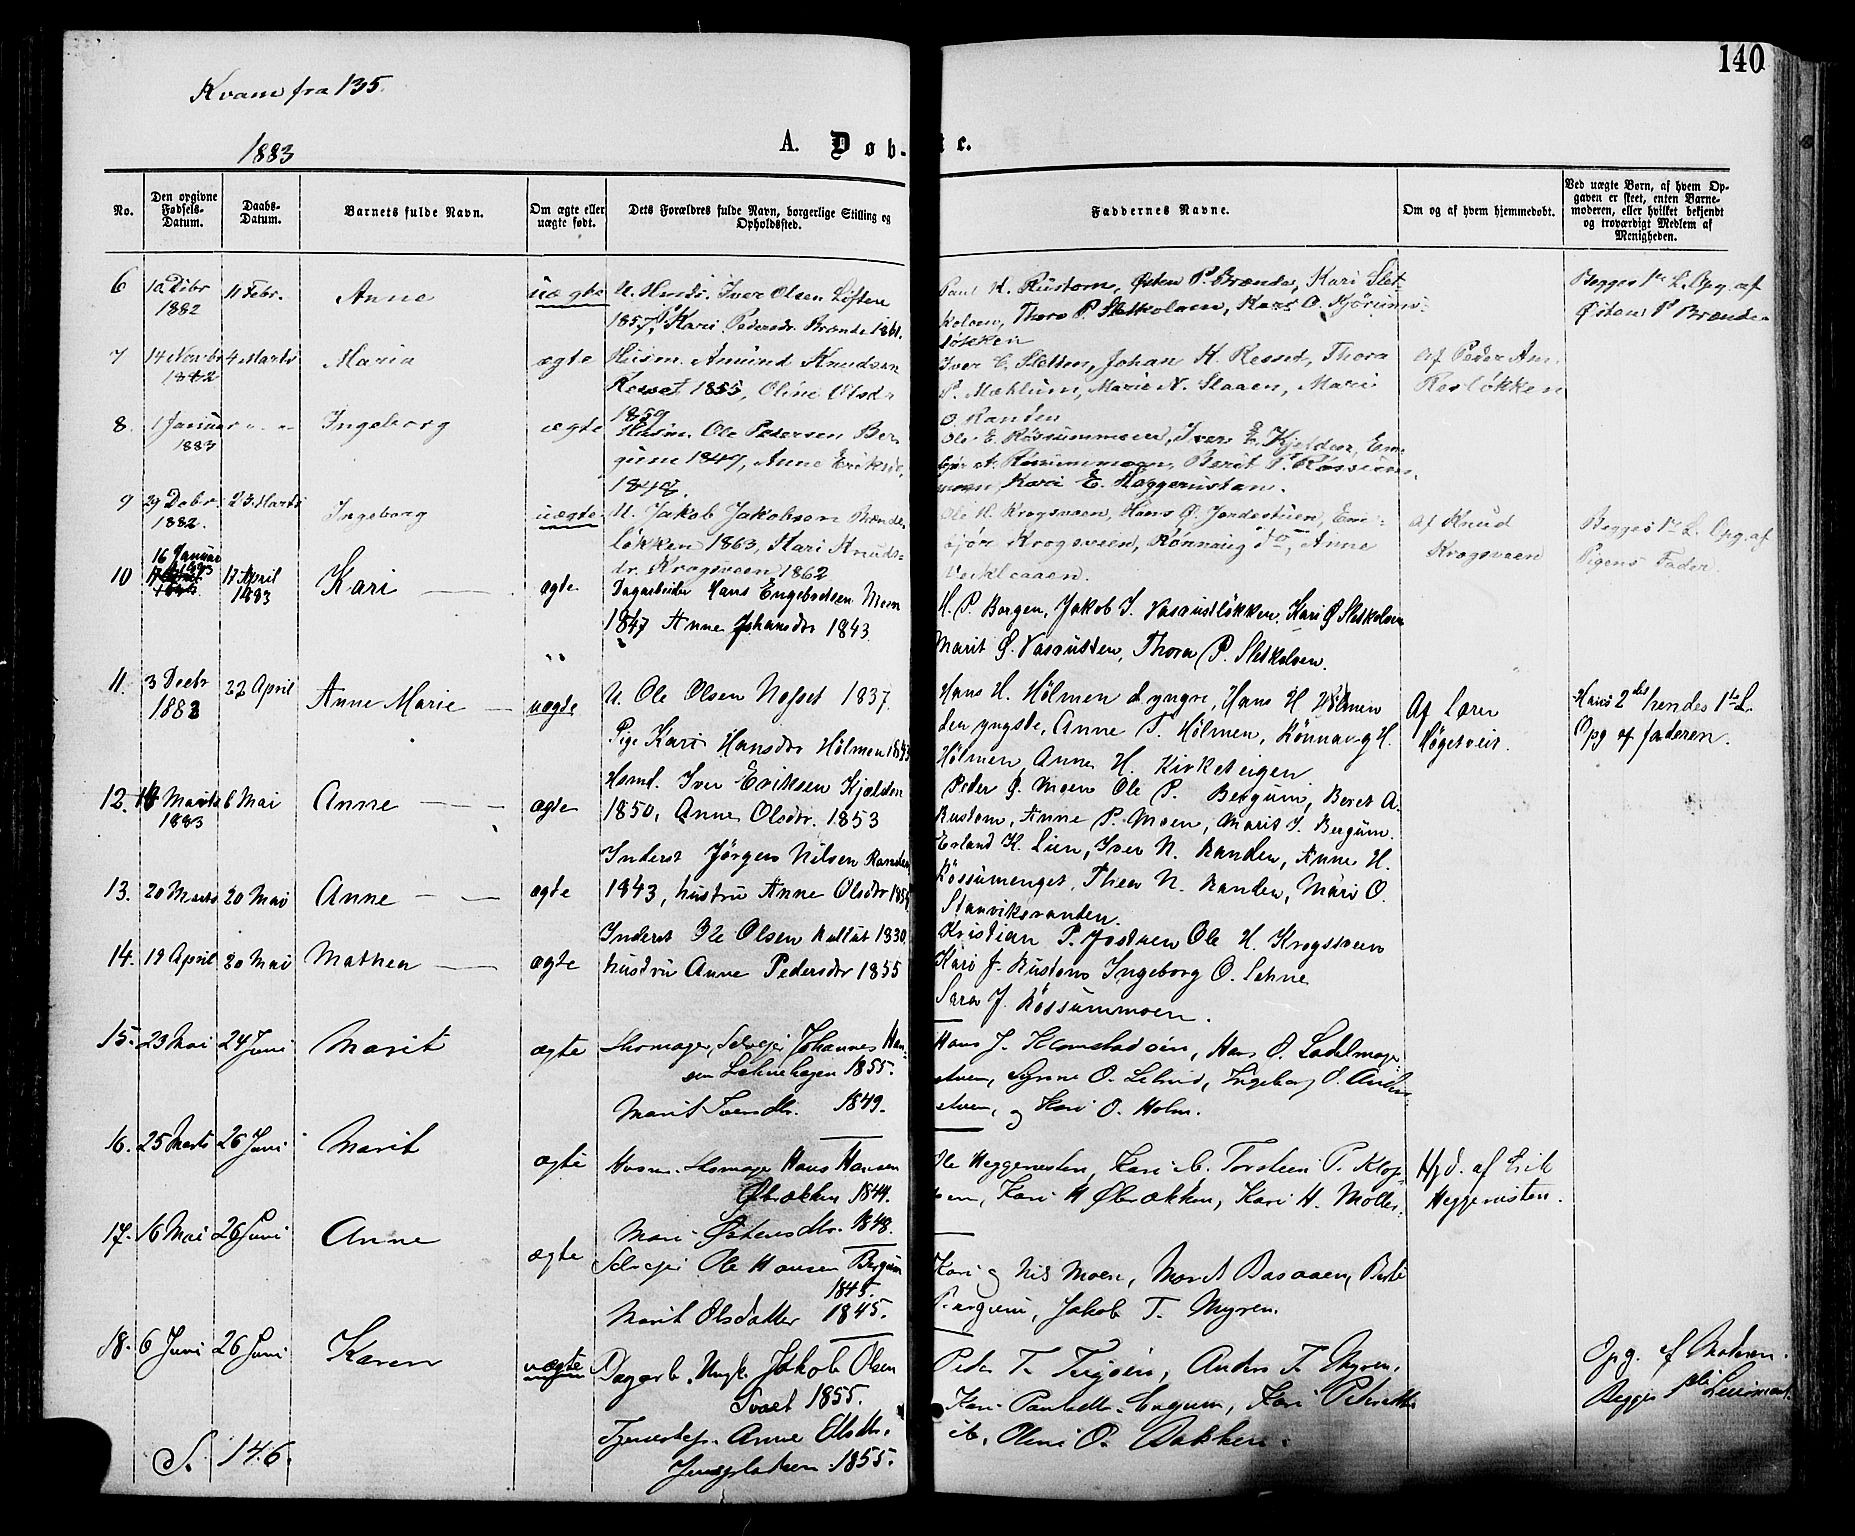 140
Kvam fra 135.
1883
A. Døbte.
No.
Den opgivne Fødsels-Datum.
Daabs-Datum.
Barnets fulde Navn.
Om ægte eller uægte født.
Dets Forældres fulde Navn, borgerlige Stilling og Opholdssted.
Faddernes Navne.
Om og af hvem hjemmedøbt.
Ved uægte Børn, af hvem Opgaven er skeet, enten Barnemoderen, eller hvilket bekjendt og troværdigt Medlem af Menigheden.
6 10 Dcbr 1882 11 Febr. Anne uægte
U. Husds. Iver Olsen Løften
1857, P. Kari Pedersdr. Brænde 1861.
Paul H. Rustom, Østen P. Brænde, Kari Slet-
kolven, Thora P. Sletkolven, Kari O. Kjørums-
løkken
Begges 1ste L. Opg. af
Østen P. Brænde
7 14 Novbr 1882 4 Marts Maria ægte
Husm. Amund Knudsen
Resset 1855, Oline Olsdr
1859
Iver E. Sletten, Johan K. Resset, Thora
P. Mæhlum, Marie N. Staaen, Mari
O. Randen
Af Peder Am.
Resløkken
8. 1 Januar 1883 Ingeborg ægte
Husm. Ole Pedersen Ber
gum 1847, Anne Eriksdr.
1848.
Ole E. Røssummoen, Iver E. Kjelden, Em-
bjør A. Røssummoen, Berit P. Røssum
moen, Kari E. Heggerusten.
9 29 Dcbr 1882. 23 Marts Ingeborg uægte
U. Jakob Jakobsen Brænde
løkken 1863, Kari Knuds-
dr. Krogsveen 1862
Ole H. Krogsveen, Hans Ø. Jordestuen, Em-
bjør Krogsveen, Rønnaug do, Anne
Veikleaaen.
Af Knud
Krogsveen
Begges 1ste L. Opg. af
Pigens Fader.
10 16 Januar 1883 17 April 1883 Kari ægte
Dagarbeider Hans Engebretsen Moen
1847 Anne Johansdr 1843.
H. P. Bergen, Jakob I. Vasrustløkken, Kari Ø Sletkolven
Marit Ø. Vasrusten, Thora P. Sletkolven.
11. 3 Decbr 1882 22 April Anne Marie uægte
U. Ole Olsen Nosset 1837.
Pige Kari Hansdr Hølmen 1843
Hans H. Hølmen d yngre, Hans H Hølmen
den yngste, Anne T. Hølmen, Rønnavg H.
Hølmen, Anne H. Kirkesteigen
Af Lærer
Høgesveit.
Hans 2det hendes 1ste L.
Opg af faderen.
12. Marts 1883 6 Mai Anne ægte
Hsmd. Iver Eriksen Kjelden
1850, Anne Olsdr. 1853
Peder Ø. Moen Ole P. Bergum, Beret A.
Rustom, Anne P. Moen, Marit I. Bergum.
13. 20 Marts 20 Mai Anne ægte
Inderst Jørgen Nilsen Randen
1843, hustru Anne Olsdr 1854
Erland K. Lien, Iver N. Randen, Anne H.
Røssumenget, Thea N. Randen, Mari O.
Stamviksranden.
14. 19 April 20 Mai Mathea ægte
Inderst Ole Olsen Kultut 1830,
hustru Anne Pedersdr 1855
Kristian P. Jostuen Ole H. Krogsveen
Kari J. Rustom Ingeborg O. Lehne
Sara J. Røssummoen.
15. 23 Mai 24 Juni Marit ægte
Skomager, Selvejer Johannes Han-
sen Lehnehagen 1855.
Marit Svensdtr. 1849.
Hans J. Klomstadøien, Hans O. Sadelmager
stuen, Synne O. Lehne, Ingeborg O. Anders-
stuen, og Kari O. Holm.
16. 25 Marts 26 Juni Marit ægte
Husm. Skomager Hans Hansen
Øbrækken 1844.
Mari Østensdtr. 1848.
Ole Heggerusten, Kari ib. Torstein P. Klop
moen, Kari H Øbrækken, Kari H. Moller.
Hjd. af Erik
Heggerusten.
17. 16 Mai 26 Juni Anne ægte
Selvejer Ole Hansen Bergum
1845.
Marit Olsdatter 1845.
Kari og Nils Moen, Marit Basaaen, Berte
Bergum, Jakob T. Myren.
18. 6 Juni 26 Juni Karen uægte
Dagarb. Ungk. Jakob Olsen
Svaet 1855.
Tjenestep. Anne Olsdtr.
Jensplassen 1855.
Peder T. Teigøien, Anders T. Myren,
Kari Paulsdtr. Bergum, Kari Pedersdtr
ib. Oline O. Bakken.
Opg. af Moderen.
Begges 1ste Leiermaal.
S. 146.